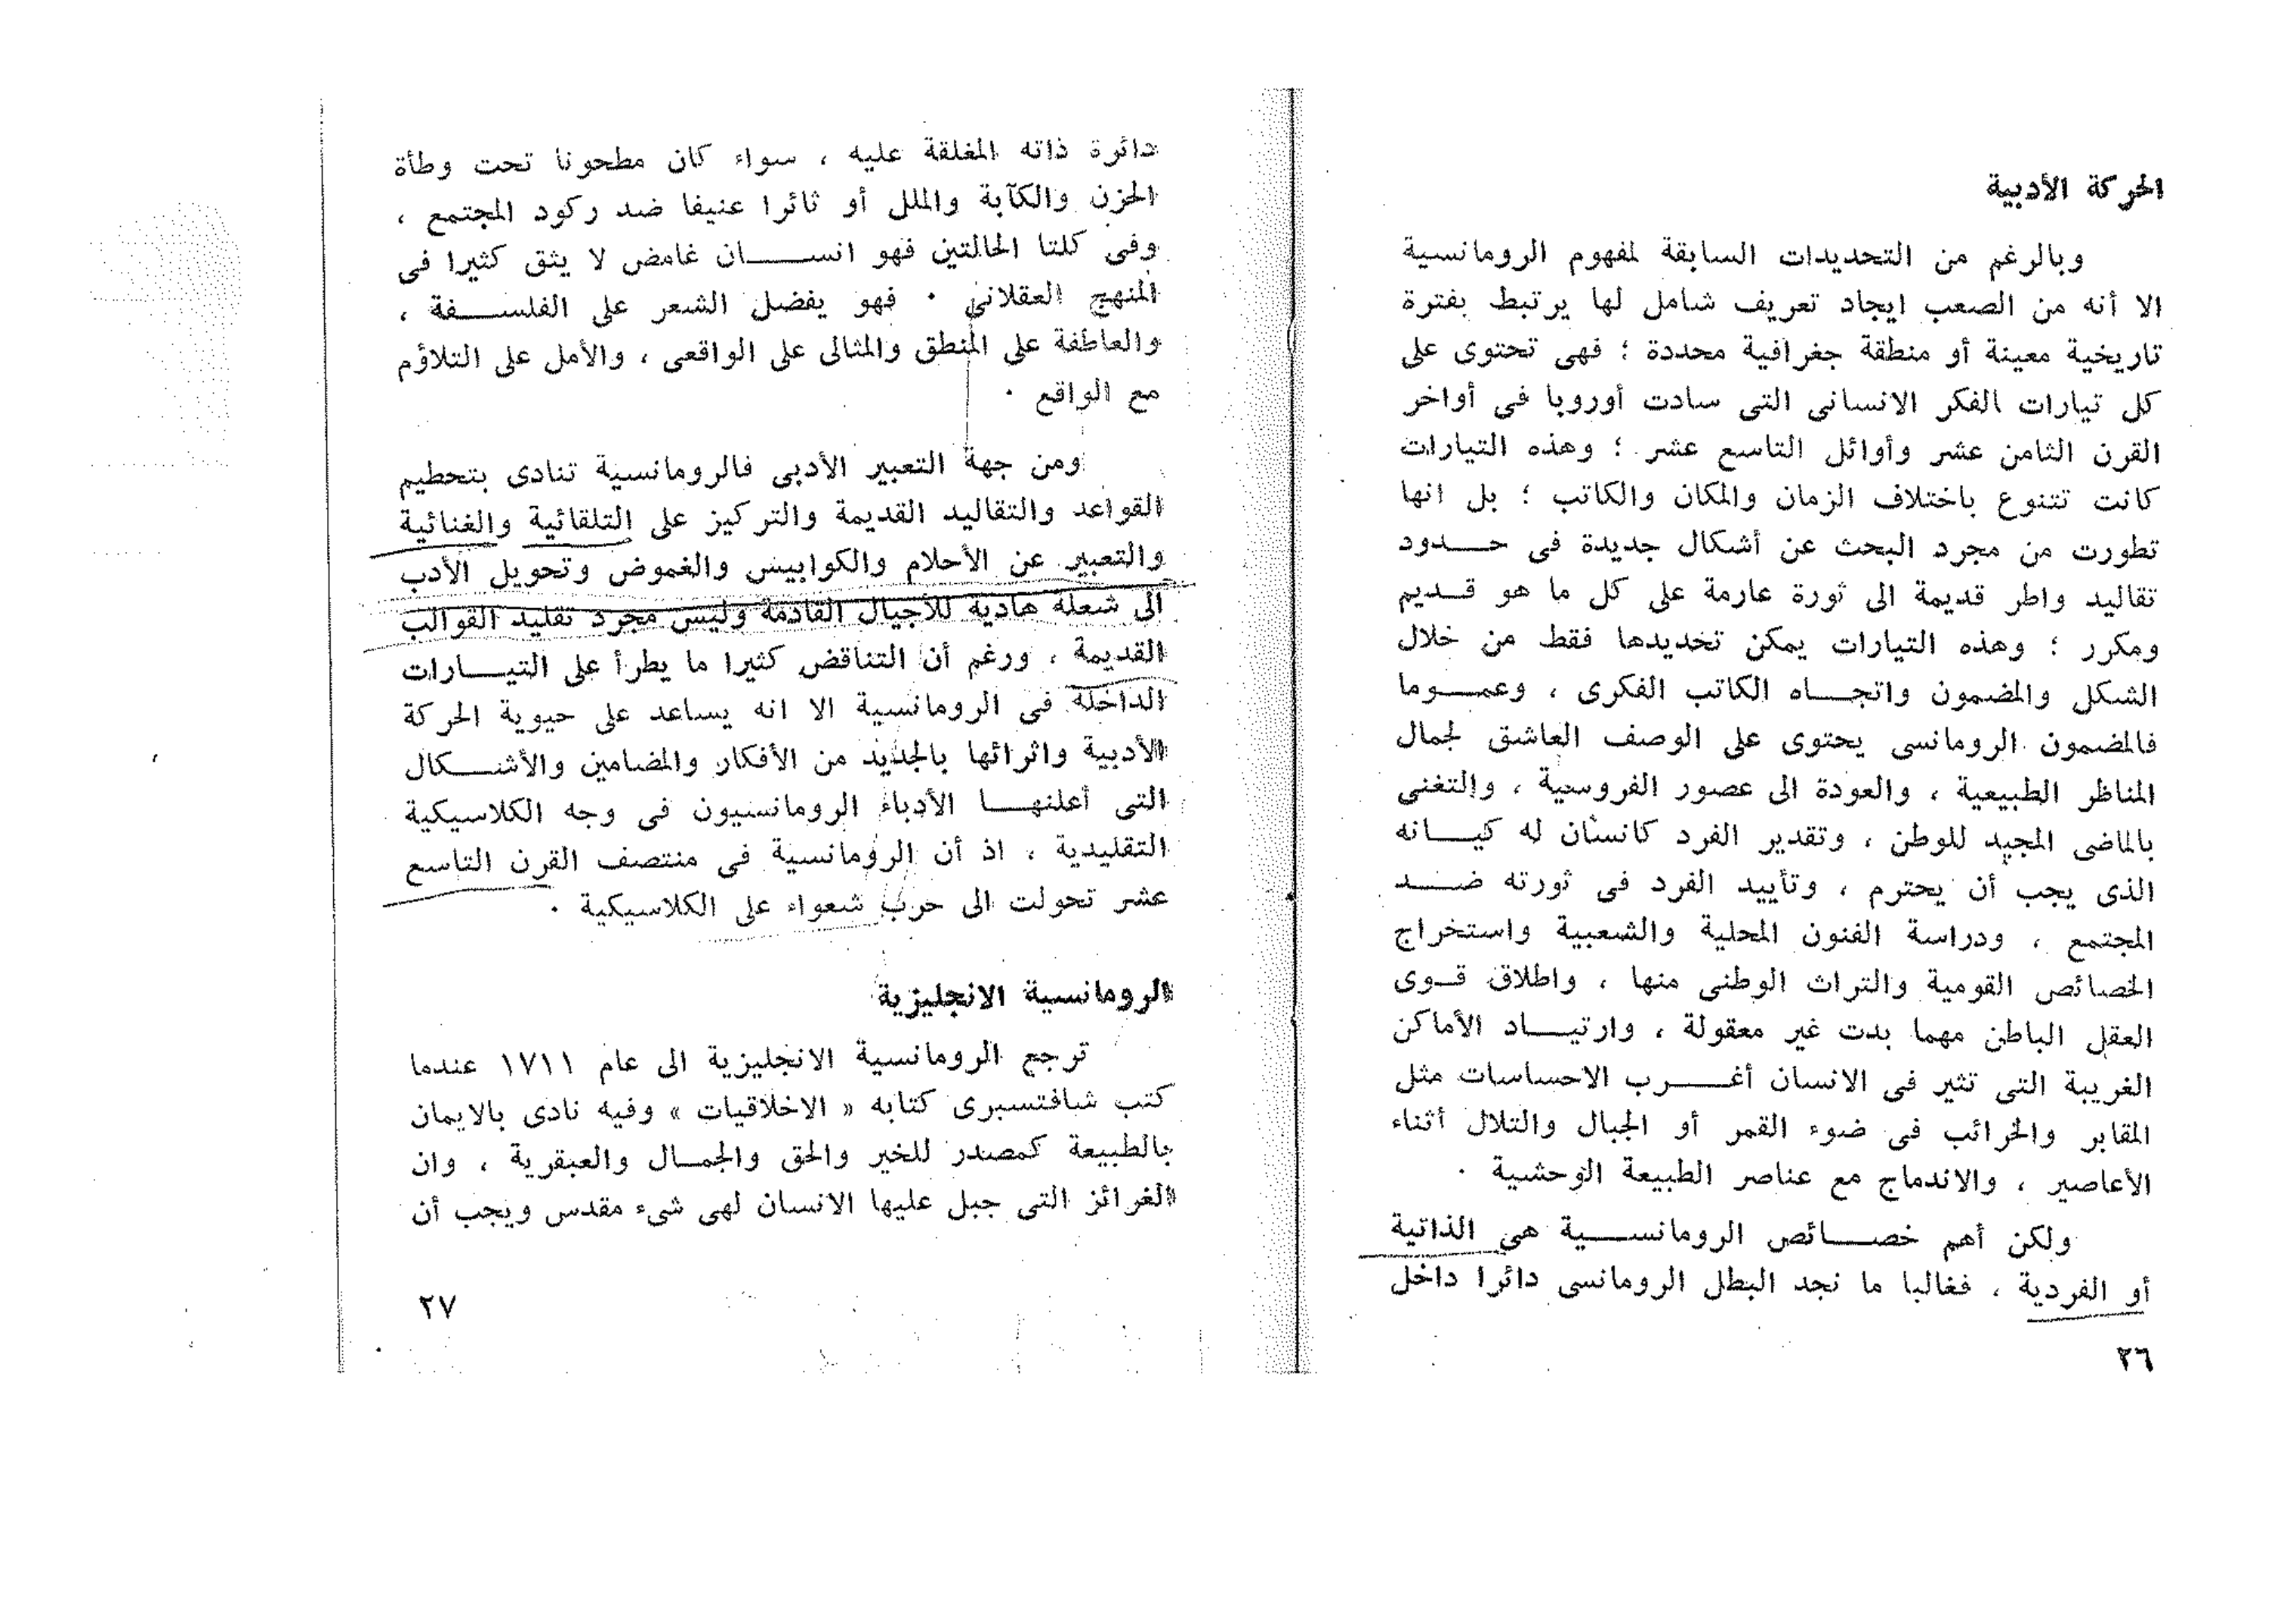 الحركة الأدبية
وبالرغم من التحديدات السابقة لمفهوم الرومانسية
الا أنه من الصعب ايجاد تعريف شامل لها يرتبط بفترة
تاريخية معينة أو منطقة جغرافية محددة ؛ فهى تحتوى على
كل تيارات الفكر الانسانى التى سادت أوروبا فى أواخر
القرن الثامن عشر وأوائل التاسع عشر ؛ وهذه التيارات
كانت تتنوع باختلاف الزمان والمكان والكاتب ؛ بل انها
تطورت من مجرد البحث عن أشكال جديدة فى حــدود
تقاليد واطر قديمة الى ثورة عارمة على كل ما هو قــديم
ومكرر ؛ وهذه التيارات يمكن تحديدها فقط من خلال
الشكل والمضمون واتجــاه الكاتب الفكرى ، وعمــوما
فالمضمون الرومانسى يحتوى على الوصف العاشق لجمال
المناظر الطبيعية ، والعودة الى عصور الفروسية ، والتغنى
بالماضى المجيد للوطن ، وتقدير الفرد كانسان له كيــانه
الذى يجب أن يحترم ، وتأييد الفرد فى ثورته ضــد
المجتمع ، ودراسة الفنون المحلية والشعبية واستخراج
الخصائص القومية والتراث الوطنى منها ، واطلاق قــوى
العقل الباطن مهما بدت غير معقولة ، وارتيــاد الأماكن
الغريبة التى تثير فى الانسان أغــرب الاحساسات مثل
المقابر والخرائب فى ضوء القمر أو الجبال والتلال أثناء
الأعاصير ، والاندماج مع عناصر الطبيعة الوحشية .
ولكن أهم خصــائص الرومانســية هى الذاتية
أو الفردية ، فغالبا ما نجد البطل الرومانسى دائرا داخل
٢٦
دائرة ذاته المغلقة عليه ، سواء كان مطحونا تحت وطأة
الحزن والكآبة والملل أو ثائرا عنيفا ضد ركود المجتمع ،
وفى كلتا الحالتين فهو انســان غامض لا يثق كثيرا فى
المنهج العقلانى . فهو يفضل الشعر على الفلســفة ،
والعاطفة على المنطق والمثالى على الواقعى ، والأمل على التلاؤم
مع الواقع .
ومن جهة التعبير الأدبى فالرومانسية تنادى بتحطيم
القواعد والتقاليد القديمة والتركيز على التلقائية والغنائية
والتعبير عن الأحلام والكوابيس والغموض وتحويل الأدب
الى شعلة هادية للأجيال القادمة وليس مجرد تقليد القوالب
القديمة ، ورغم أن التناقض كثيرا ما يطرأ على التيــارات
الداخلة فى الرومانسية الا انه يساعد على حيوية الحركة
الأدبية واثرائها بالجديد من الأفكار والمضامين والأشــكال
التى أعلنهــا الأدباء الرومانسيون فى وجه الكلاسيكية
التقليدية ، اذ أن الرومانسية فى منتصف القرن التاسع
عشر تحولت الى حرب شعواء على الكلاسيكية .
الرومانسية الانجليزية
ترجع الرومانسية الانجليزية الى عام ١٧١١ عندما
كتب شافتسبرى كتابه « الاخلاقيات » وفيه نادى بالايمان
بالطبيعة كمصدر للخير والحق والجمــال والعبقرية ، وان
الغرائز التى جبل عليها الانسان لهى شىء مقدس ويجب أن
٢٧